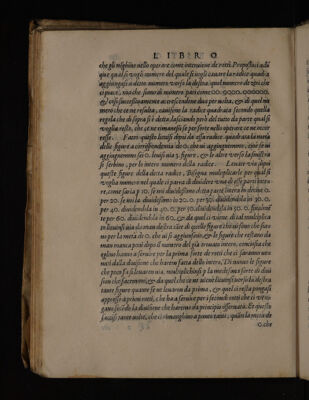 LIBRO
che gli nighino nello operare come interuiene de rotti. Propostici adū
que qual si vogli numero del quale si vogli cauare la radice quadra
aggiungasi a detto numero verso la destra, quel numero de zeri che
ci piace, ma che siano di numero pari come 00. 0000. 000000.
& cosi successiuamente accrescendone due per volta, & di quel nu
mero che ce ne resulta, cauisene la radice quadrata secondo quella
regola che di sopra si è detta, lasciando però del tutto da parte qual si
voglia resto, che ce ne rimanessi se per sorte nello operare ce ne occor
resse. Fatto questo seguasi dopo da essa radice quadrata la metà
delle figure a correspondentia de 0. che tu aggiugnemmo, cioè se ui
aggiugnemmo sei 0. leuisi via 3 figure, & le altre verso la sinistra
si serbino, per lo intero numero della radice. Leuate via dipoi
queste figure della detta radice. Bisogna multiplicarle per qual si
voglia numero nel quale ci parrà di diuidere vna di esse parti inte-
re, come saria p 10. se noi diuidessimo detta parte intera in decine o
per 20. se noi la diuidessimo in 20. o per 30. diuidendola in 30. o
per 40. diuidendola in 40. o per 50. diuidendola in 50. o finalmẽ
te per 60. diuidendola in 60. & da quel ci viene di tal multiplica
re lieuinsi via da man destra tãte di quelle figure che ui sono che sia-
no per la metà de 0. che ui si aggiunsono, & le figure che restano da
man manca posti dopo il numero del già trouato intero, conciosia che
eglino hanno a seruire per la prima sorte de rotti che ci saranno uenuti
dalla diuisione che haremo fatta dello intero. Di nuouo le figure
che poco fa si leuarono via, multiplichinsi p la medesima sorte di diui
sion che facemmo, & da quel che ce ne uiene lieuinsi uerso la destra
tante figure quante se ne leuaron da prima, & quel ci resta pongasi
appresso a primi rotti, che ha a seruire per i secondi rotti che ci vẽgono
secõdo la diuisione che haremo da principio osseruata. Et questo
facciasi tante uolte, che ci rimanghino a punto tanti, quãti la metà de
0. che